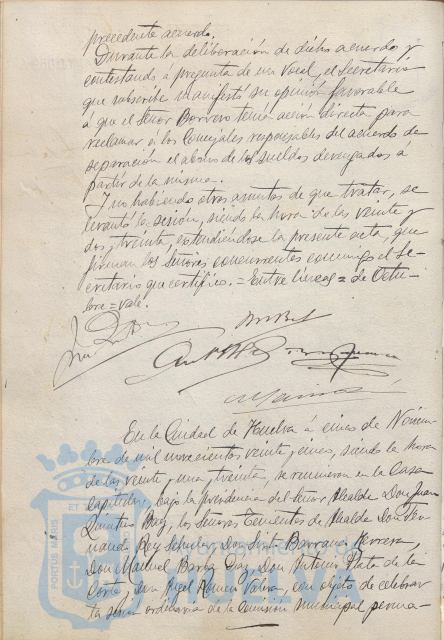 precedente acuerdo.
Durante la deliberación de dicho acuerdo y
contestando á pregunta de un Vocal, el Secretario
que suscribe manifestó su opinión favorable
á que el Señor Borrero tenía acción directa para
reclamar á los Concejales responsables del acuerdo de
separación el abono de los sueldos devengados á
partir de la misma.
Y no habiendo otros asuntos de que tratar, se
levantó la sesión, siendo la hora de las veinte y
dos y treinta, extendiéndose la presente acta, que
firman los Señores concurrentes conmigo el Se-
cretario que certifico. = Entre lineas = de Octu-
bre = vale.
En la Ciudad de Huelva á cinco de Noviem-
bre de mil novecientos veinte y cinco, siendo la hora
de las veinte y una y treinta, se reunieron en la Casa
Capitular, bajo la presidencia del Señor Alcalde Don Juan
Quintero Baez, los Señores Tenientes de Alcalde Don Fer-
nando Rey Don Barranco Herrera,
Don Manuel Barba Don Antonio Plata de la
Corte, Don con objeto de celebrar
la sesión ordinaria de la Comisión municipal perma-
PORTUS MARIS ET
HUELVA